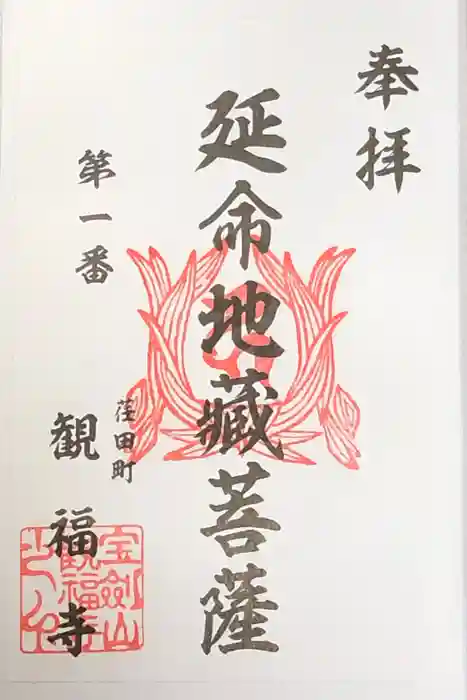 奉拝
延命地藏菩薩
第一番
荏田町
観福寺
宝剣山
観福寺